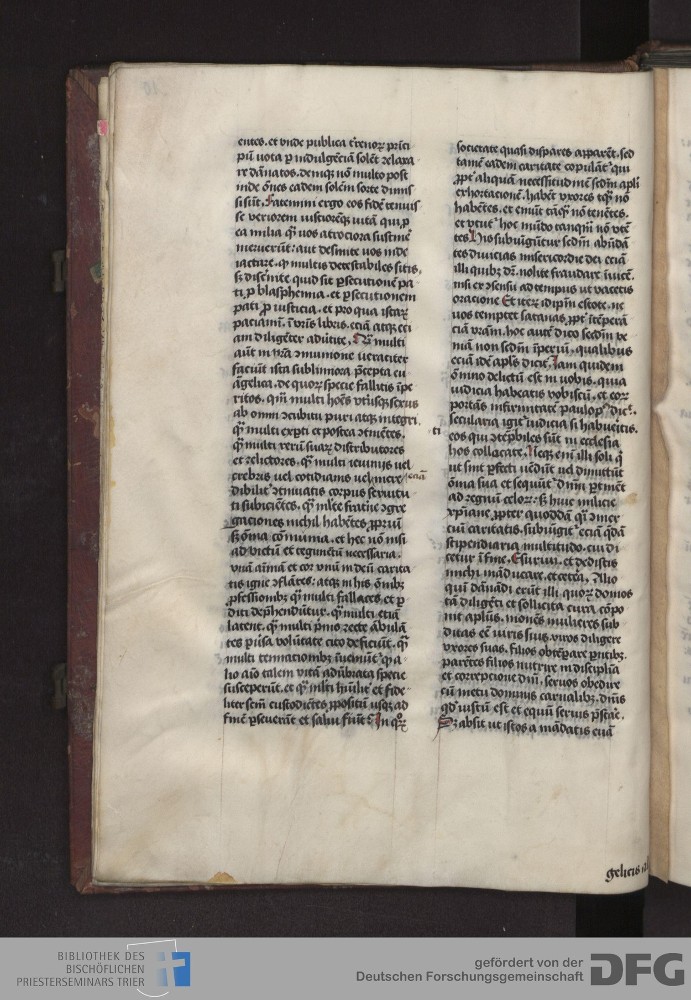 entes. et unde publica t̃renoꝝ pri̅ci
piu̅ uota ꝑ indulge̅tia̅ sole̅t relaxa
re da̅natos. deniqꝫ no̅ multo post
inde o̅nes eadem sole̅m sorte dimis
si su̅t. Fatemini ergo eos fide̅ tenuis
se veriorem iustiore̅qꝫ uita̅ qui ꝓ
ea milia qͣ uos atrociora sustine̅
meruerūt: aut desinite uos inde
iactare. qꝫ multis detestabiles sitis,
sꝫ discernite quid sit ꝑsecutione̅ pa
ti ꝓ blasphemia. et ꝑsecutionem
pati ꝓ iusticia. et pro qua istaꝝ
paciami̅. i̅ vr̅is libris. ecia̅ atqꝫ eti
am dilige̅ter adu̅tite. multi
aūt in vr̅a ꝯmunione ueraciter
faciūt ista sublimiora p̅cepta eu
a̅gelica. de quoꝝ specie fallitis i̅pe
ritos. qm̅ multi ho̅i̅es ut̅usqꝫ sexus
ab omni ꝯcubitu puri atqꝫ integri
qꝫ multi exp̅ti et postea ꝯtine̅tes.
qꝫ multi reru̅ suaꝝ distributores
et relictores. qꝫ multi ieiuniis uel
crebris uel cotidianis uel incre ecia̅
dibilit̅ ꝯtinuatis corpus seruitu ti
ti subicie̅tes. qꝫ ml̅te fratn̅e ꝯgre
gaciones nichil habe̅tes ꝓpriu̅
sꝫ o̅ma co̅muna. et hec no̅ nisi
ad victu̅ et tegime̅tu̅ necessaria.
una̅ ai̅ma̅ et cor unu̅ in deu̅ carita
tis igne ꝯfla̅tes: atqꝫ in his o̅mbꝫ
ꝓfessionibꝫ qꝫ multi fallaces. et ꝑ
diti dep̅he̅du̅tur. qꝫ multi etia̅
latent. qꝫ multi p̅mis recte a̅bula̅
tes p̅uisa volu̅tate cito deficiu̅t. qꝫ
multi te̅ntacionibꝫ i̅ueniu̅t qi a
lio ai̅o talem vita̅ adu̅brata specie
susceperu̅t. et qꝫ ml̅ti hu̅ilit̅ et fide
liter sc̅m custodie̅tes ꝓpositu̅ usqꝫ ad
fine̅ ꝑseueru̅t et salui fiu̅t. In qͦꝝ
societate quasi dispares appare̅t. sed
tame̅ eadem caritate copula̅t̅ qui
ꝓpt̅ aliqua̅ necessitudine̅ sed̅m apl̅i
exhortacione̅. habe̅t uxores tqꝫ no̅
habe̅tes. et emu̅t ta̅qꝫ no̅ tene̅tes.
et utu̅t̅ hoc mu̅do tanqm̅ no̅ ute̅
tes. His subiu̅gu̅tur sed̅m abu̅da̅
tes diuicias misericordie dei ecia̅
illi quibꝫ dr̅. nolite fraudare i̅uice̅.
nisi ex ꝯsensu ad tempus ut vacetis
oracione. Et iteꝝ idip̅m estote. ne
uos temptet satanas. ꝓpt̅ i̅te̅pera̅
cia̅ vr̅am. hoc aute̅ dico sed̅m ve
nia̅ non sed̅m i̅periu̅. qualibus
ecia̅ ide̅ apl̅s dicit. Iam quidem
o̅mno delictu̅ est in uobis. quia
iudicia habeatis vobiscu̅. et eoꝝ
porta̅s infirmitate̅ paulopͦ dic̅.
secularia igit̅ iudicia si habueritis.
eos qui ꝯte̅pbiles su̅t in ecclesia
hos collocate. Neqꝫ eni̅ illi soli q̅
ut sint ꝑfecti ue̅du̅t uel dimittu̅t
o̅ma sua et sequu̅t̅ dn̅m p̅tine̅t
ad regnu̅ celoꝝ: sꝫ huic milicie
xp̅iane ꝓpter quodda̅ qi ꝯmer
ciu̅ caritatis. subiu̅git̅ ecia̅ qda̅
stipendiaria multitudo. cui di
cetur i̅ fine. Esuriui. et dedistis
michi ma̅ducare. et cetera̅. Alio
qui̅ da̅na̅di eru̅t illi. quoꝝ domos
ta̅ dilige̅ti et sollicita cura co̅po
nit apl̅us. mone̅s mulieres sub
ditas ee̅ uiris suis. viros diligere
uxores suas. filios obte̅pare p̅ntibꝫ.
pare̅tes filios nutrire in disciplina
et correpcione dn̅i. seruos obedire
cu̅ metu dominis carnalibꝫ. dn̅os
qd̅ iustu̅ est et equu̅ seruis p̅sta̅e.
Sꝫ absit ut istos a ma̅datis eua̅
gelicis
BIBLIOTHEK DES
BISCHÖFLICHEN
PRIESTERSEMINARS TRIER
gefördert von der
Deutschen Forschungsgemeinschaft
DFG